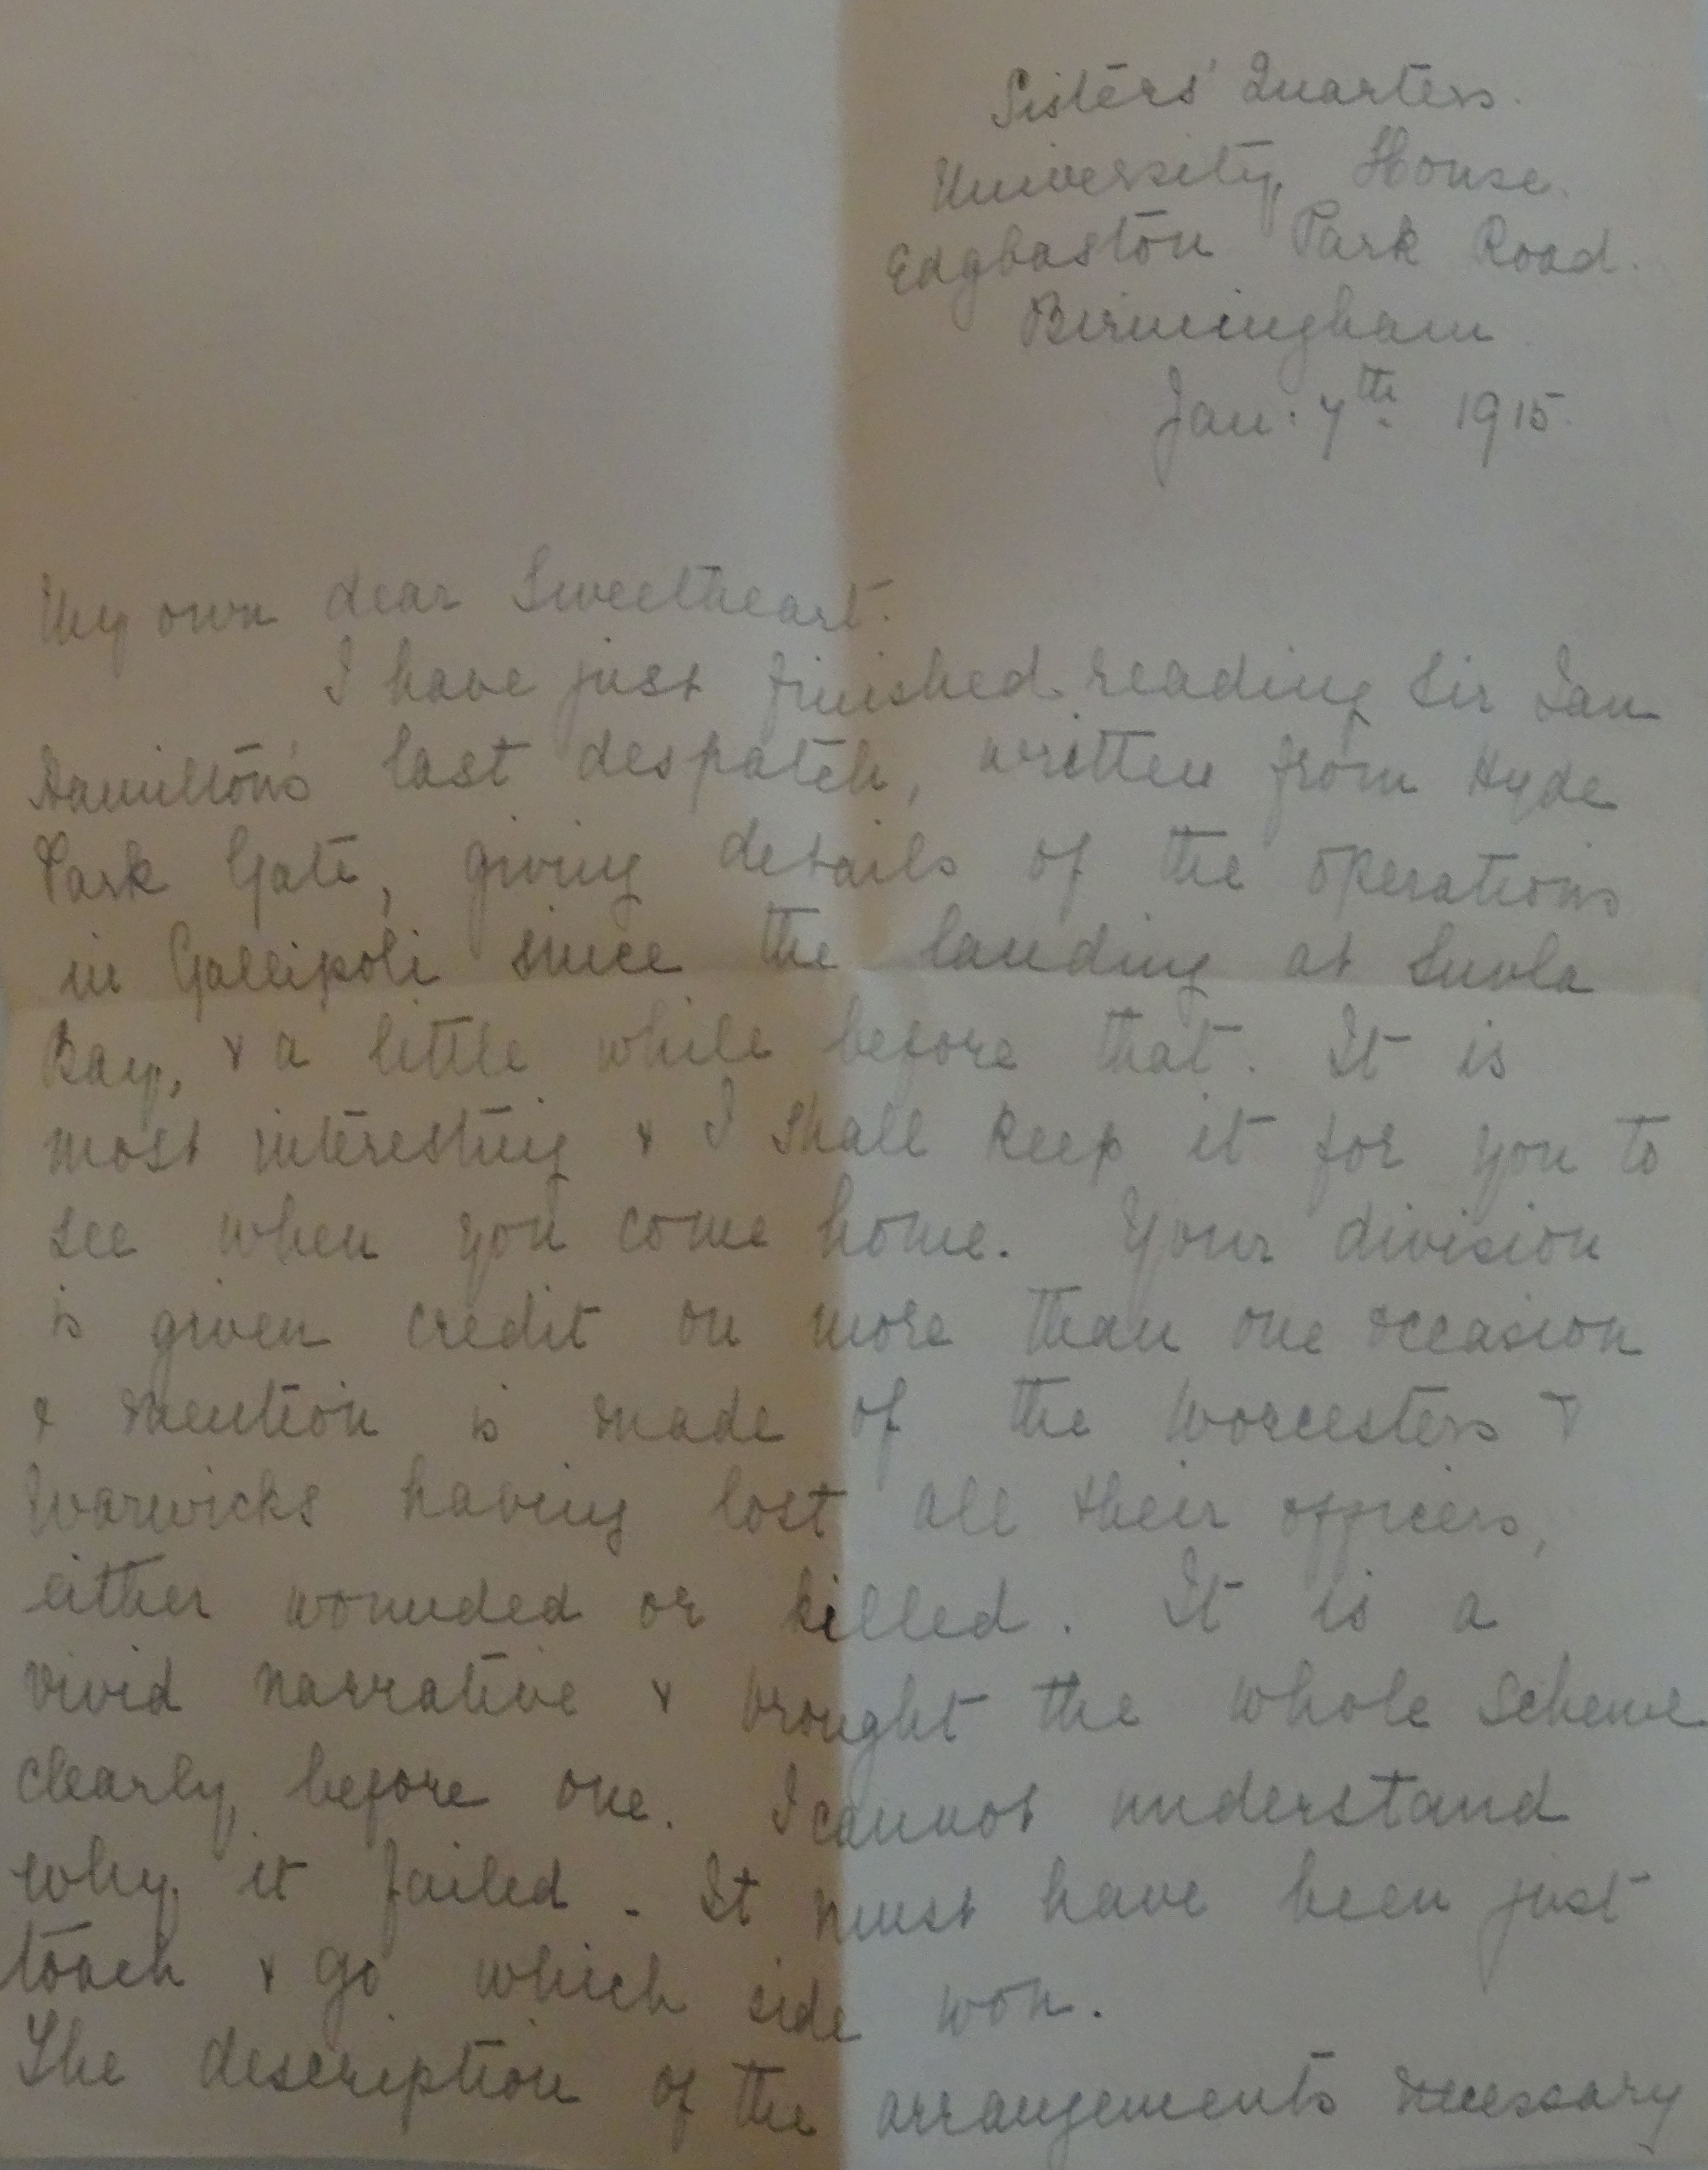 Sisters' Quarters.
University House.
Edgbaston Park Road.
Birmingham
Jan: 7th 1915.
My own dear Sweetheart.
I have just finished reading Sir Ian
Hamilton's last despatch, written from Hyde
Park Gate, giving details of the operations
in Gallipoli since the landing at Suvla
Bay, & a little while before that. It is
most interesting & I shall keep it for you to
see when you come home. Your division
is given credit on more than one occasion
& mention is made of the Worcesters &
Warwicks having lost all their officers,
either wounded or killed. It is a
vivid narrative & brought the whole scheme
clearly before one. I cannot understand
why it failed - It must have been just
touch & go which side won.
The description of the arrangements necessary